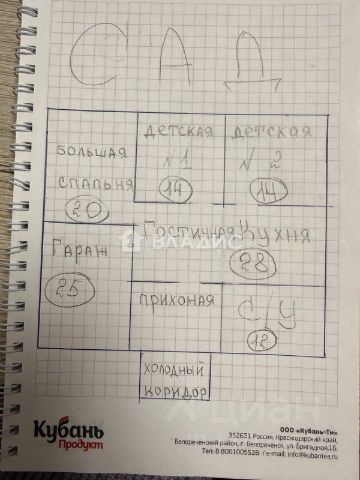 САД
ДЕТСКАЯ
№1
14
ДЕТСКАЯ
№ 2
14
БОЛЬШАЯ
СПАЛЬНЯ
20
Гостичная Кухня
28
ГАРАЖ
25
ПРИХОНАЯ
С/У
12
ХОЛОДНЫЙ
КОРИДОР
ВЛАДИС
Циан
Кубань
Продукт
ООО «Кубань-Ти»
352631, Россия, Краснодарский край,
Белореченский район, г. Белореченск, ул. Бригадная,16
Тел: 8 8001005528 e-mail: info@kubantea.ru